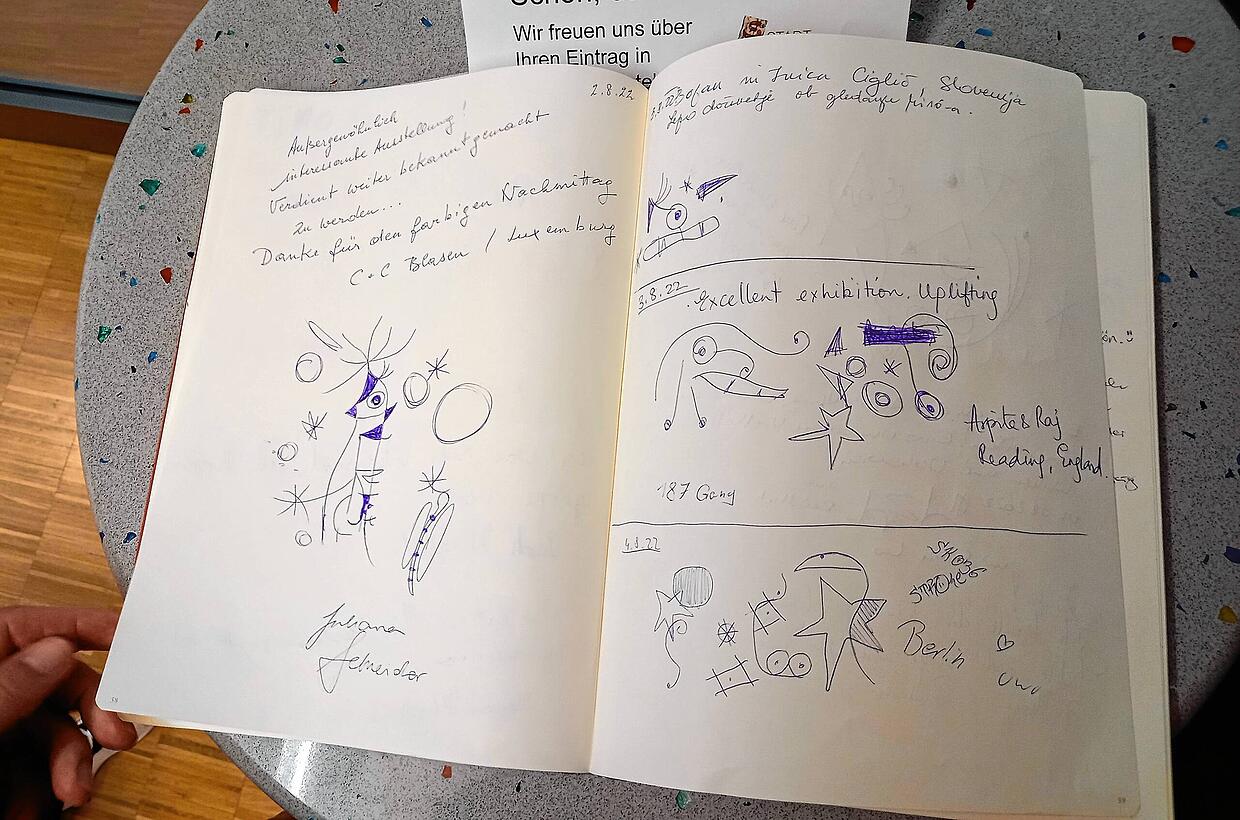 Wir freuen uns über
Ihren Eintrag in
2.8.22
Außergewöhnlich
interessante Ausstellung!
Verdient weiter bekannt gemacht
zu werden...
Danke für den farbigen Nachmittag
C + C Blasen / Luxemburg
Juliana
58
3.8.22
Štefan in Ivica Ciglič, Slovenija
Lepo doživetje ob gledanju Miró-a.
3.8.22
Excellent exhibition. Uplifting
Arpita & Raj
Reading, England.
187 Gang
4.8.22
Berlin
uwu
59